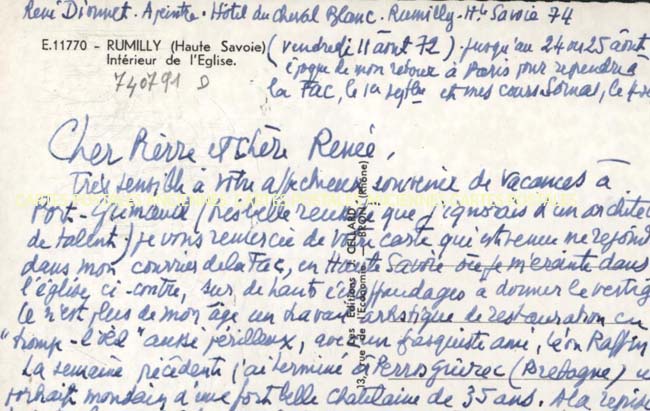 René Dionnet. Apeintre. Hôtel du Cheval Blanc. Rumilly. Hte Savoie 74
E.11770 - RUMILLY (Haute Savoie)
Intérieur de l'Eglise.
(vendredi 11 août 72). jusqu'au 24 ou 25 août
époque de mon retour à Paris pour reprendre à
la Fac, le 1er et mes cours le
740791 D
Cher Pierre et chère Renée,
Très sensible à votre souvenir de vacances à
Port-Grimaud (très belle que j'ignorais d'un
de talent) je vous remercie de votre carte qui est venue me
dans mon courrier de la Fac, en Haute Savoie où je m'éreinte dans
l'église ci-contre, sur de hauts échaffaudages à donner le vertige
Ce n'est plus de mon âge un travail artistique de restauration en
"trompe-l'œil" aussi périlleux, avec un fresquiste ami, Léon Raffin
La semaine précédente j'ai terminé à Perros Guirec (Bretagne) u
portrait mondain d'une fort belle chatelaine de 35 ans. A la reprise
13, rue de l'Economie - BRON (Rhône)
Les Editions J. CELLARD